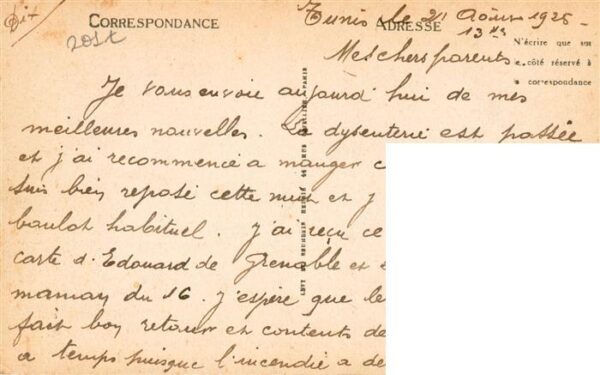 Dix
2017
CORRESPONDANCE
Tunis le 21 Août 1925
ADRESSE
13 Hs
N'écrire que sur
le côté réservé à
la correspondance
Mes chers parents
Je vous envoie aujourd'hui de mes
meilleures nouvelles. La dysenterie est passée
et j'ai recommencé a manger
suis bien reposé cette nuit et j
boulot habituel. j'ai reçu ce
carte d'Edouard de Grenoble et
maman du 16. j'espère que le
fait bon retour et contents de
a temps puisque l'incendie a de
LEVY ET NEURDEIN REUNIS PARIS